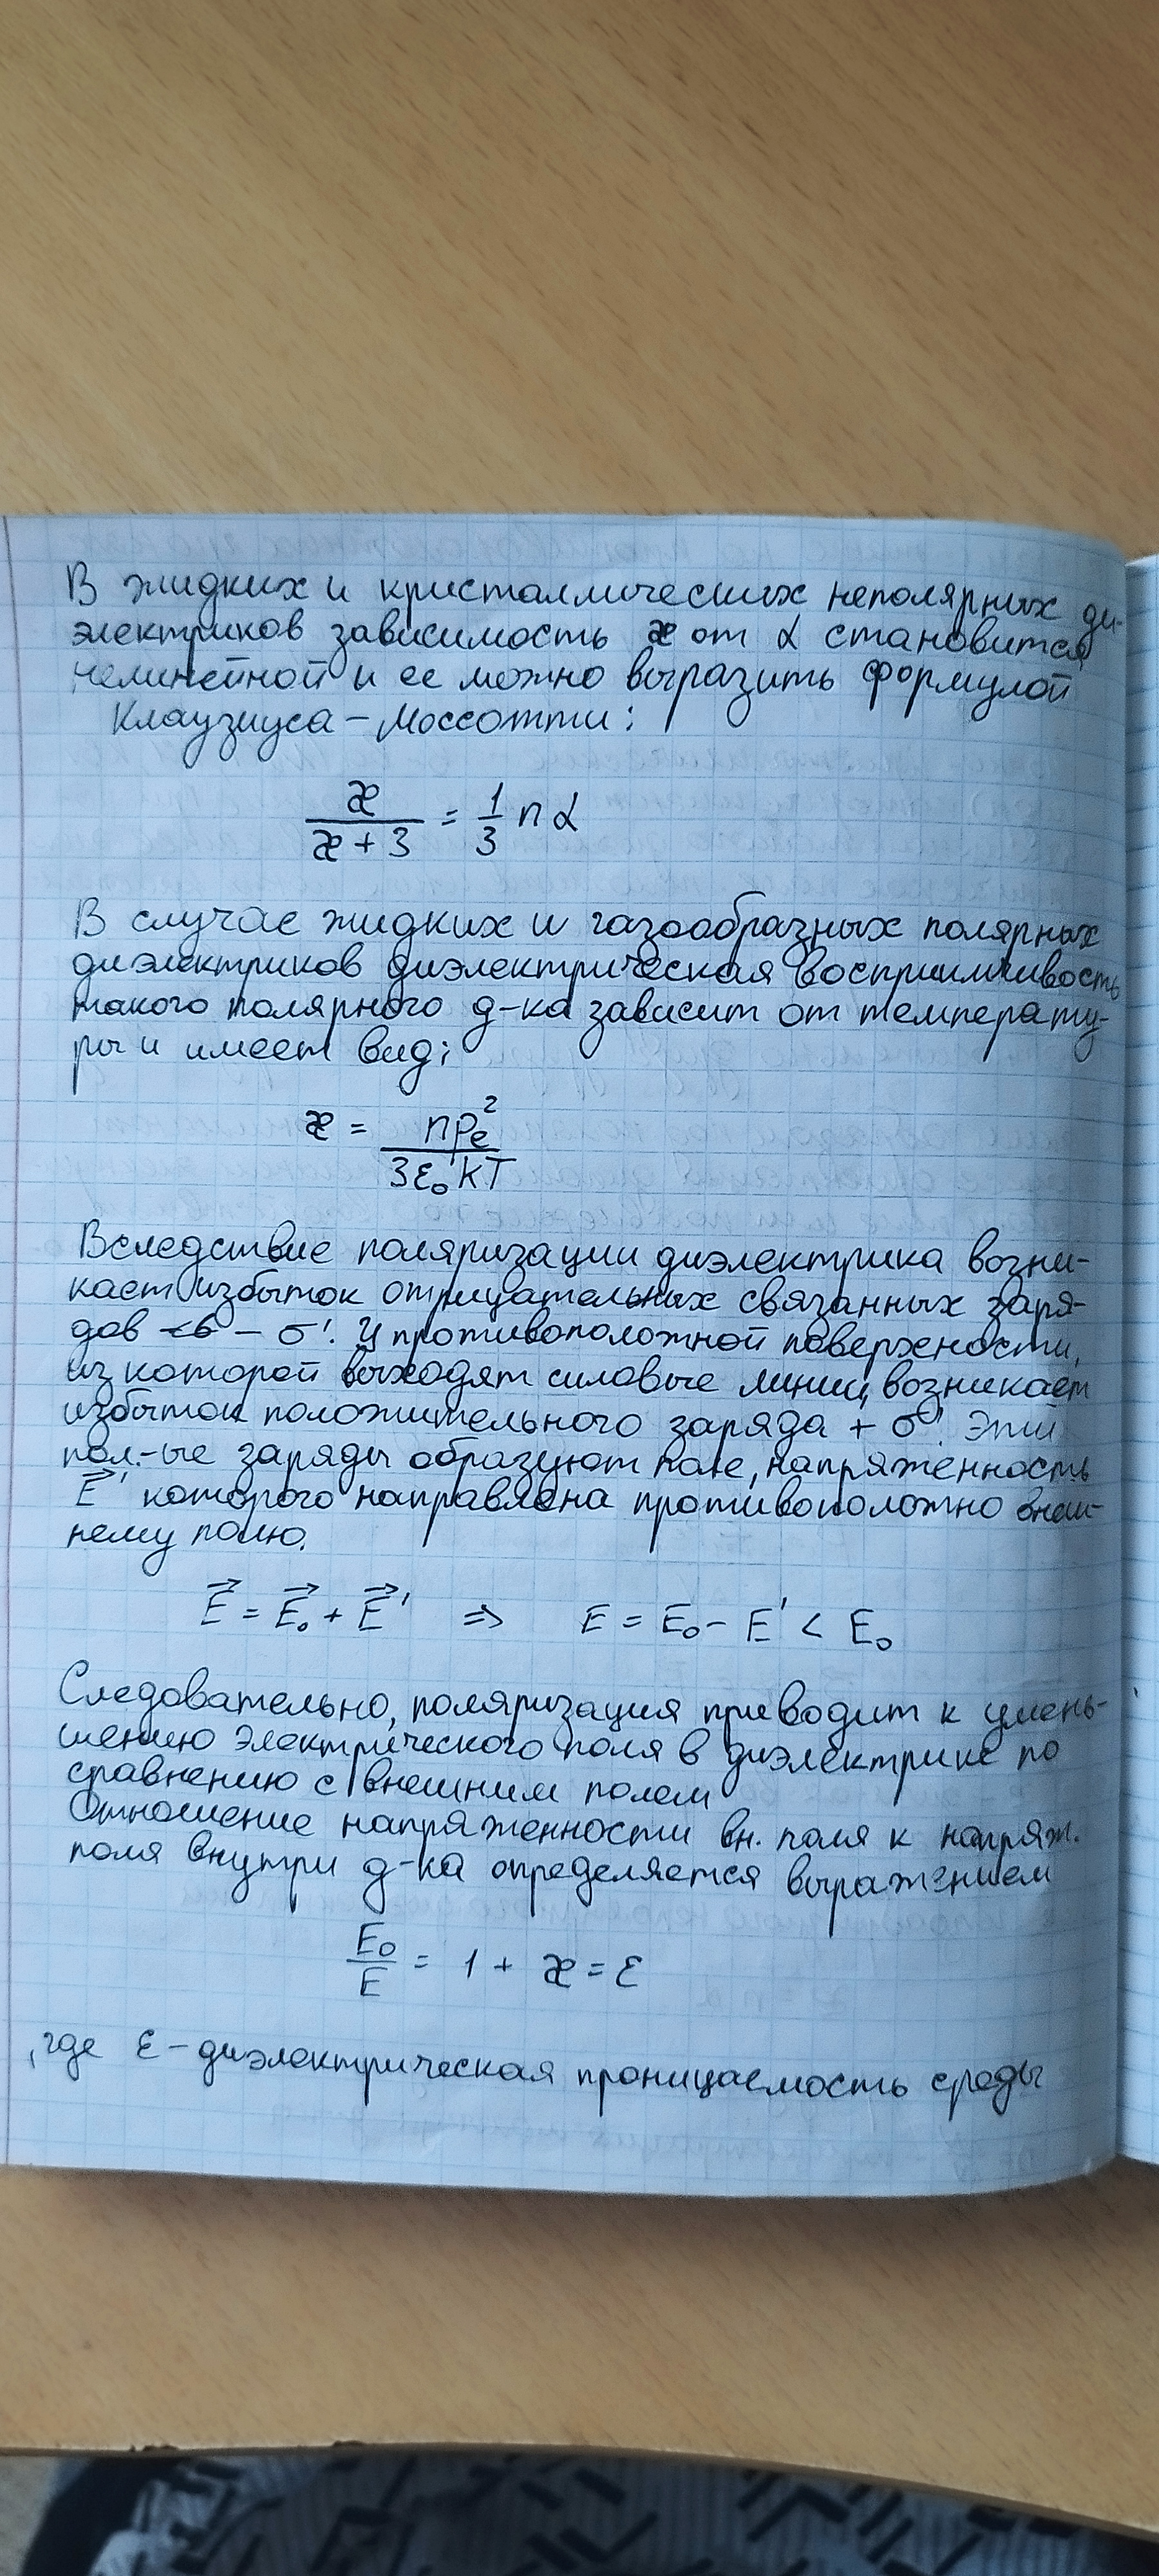 В жидких и кристаллических неполярных ди-
электриков зависимость æ от α становится
нелинейной и ее можно выразить формулой
Клаузиуса – Моссотти:
æ / (æ + 3) = 1/3 n α
В случае жидких и газообразных полярных
диэлектриков диэлектрическая восприимчивость
такого полярного д-ка зависит от температу-
ры и имеет вид:
æ = npₑ² / 3ε₀kT
Вследствие поляризации диэлектрика возни-
кает избыток отрицательных связанных заря-
дов – σ'. У противоположной поверхности,
из которой выходят силовые линии, возникает
избыток положительного заряда + σ'. Эти
пол.-ые заряды образуют поле, напряженность
E⃗' которого направлена противоположно внеш-
нему полю.
E⃗ = E⃗₀ + E⃗' ⇒ E = E₀ – E' < E₀
Следовательно, поляризация приводит к умень-
шению электрического поля в диэлектрике по
сравнению с внешним полем
Отношение напряженности вн. поля к напряж.
поля внутри д-ка определяется выражением
E₀/E = 1 + æ = ε
, где ε – диэлектрическая проницаемость среды